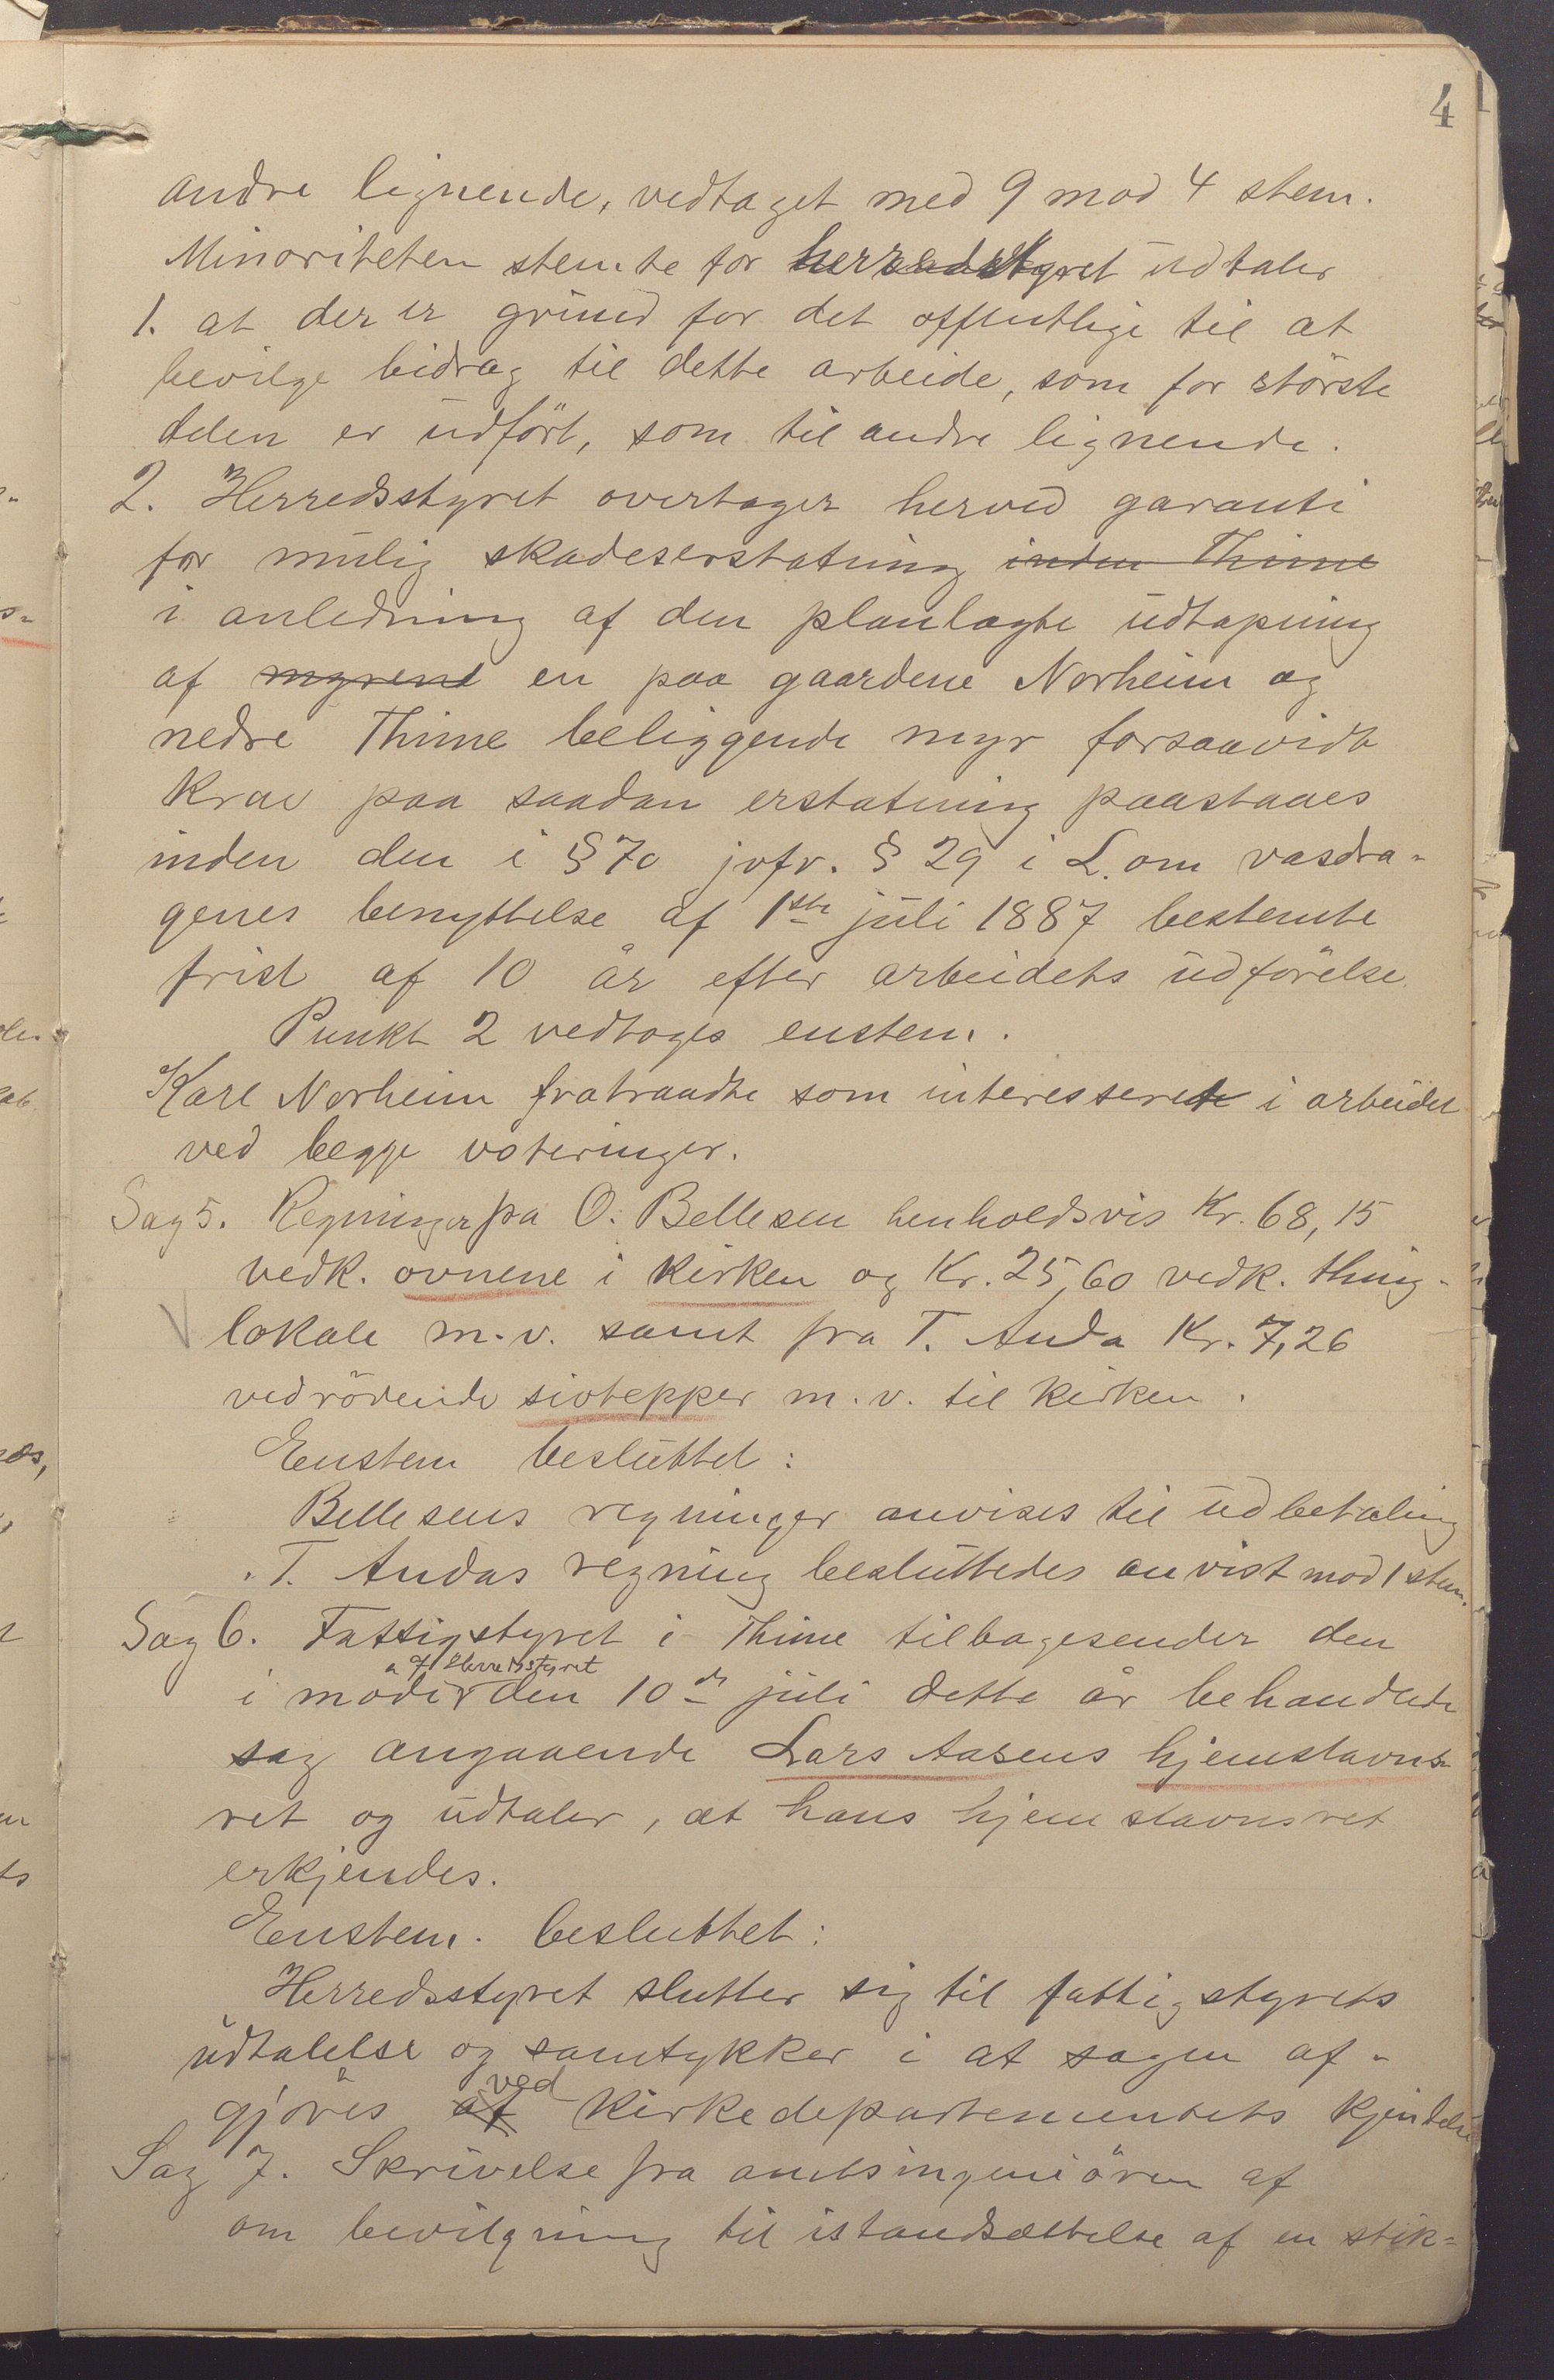 4
andre lignende, vedtaget med 9 mod 4 stem.
Minoriteten stemte for herredstyret udtaler
1. at der er grund for det offentlige til at
bevilge bidrag til dette arbeide, som for störste
delen er udfört, som til andre lignende.
2. Herredsstyret overtager herved garanti
for mulig skadeserstatning inden Thime
i anledning af den planlagte udtapning
af myrene en paa gaardene Norheim og
nedre Thime beliggende myr forsaavidt
krav paa saadan erstatning paastaaes
inden den i § 70 jvfr. § 29 i L. om vasdra-
genes benyttelse af 1ste juli 1887 bestemte
frist af 10 år efter arbeidets udförelse.
Punkt 2 vedtoges enstem.
Karl Norheim fratraadte som interesseret i arbeidet
ved begge voteringer.
Sag 5. Regninger fra O. Bellesen henholdsvis Kr. 68,15
vedk. ovnene i kirken og Kr. 25,60 vedk. thing-
lokale m.v. samt fra T. Anda Kr. 7,26
vedrörende sivtepper m.v. til kirken.
Enstem besluttet:
Bellesens regninger anvises til udbetaling
T. Andas regning besluttedes anvist mod 1 stem.
Sag 6. Fattigstyret i Thime tilbagesender den
af Herredsstyret
i möde den 10de juli dette år behandlede
sag angaaende Lars Aasens hjemstavns-
ret og udtaler, at hans hjemstavnsret
erkjendes.
Enstem. besluttet:
Herredsstyret slutter sig til fattigstyrets
udtalelse og samtykker i at sagen af-
gjöres af ved kirkedepartementets kjendelse
Sag 7. Skrivelse fra amtsingeniören af
om bevilgning til istandsættelse af en stik=